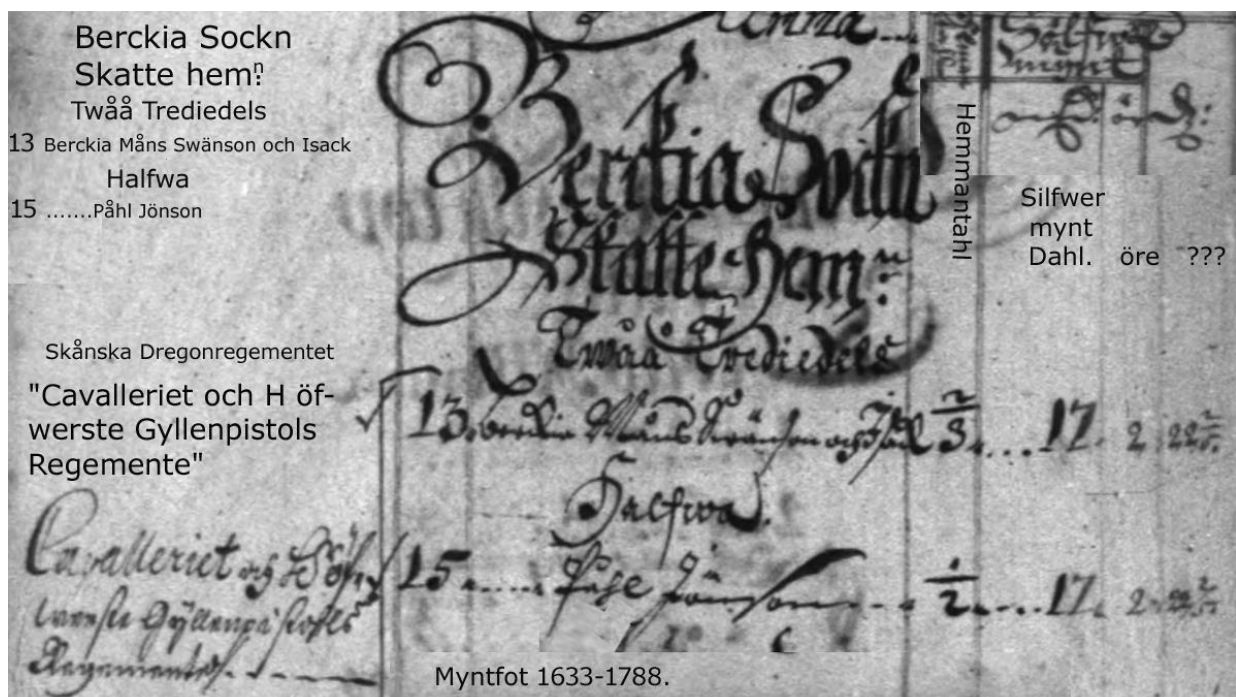 Berckia Sockn
Skatte hem:n
Twåå Trediedels
13 Berckia Måns Swänson och Isack
Halfwa
15 .......Påhl Jönson
Skånska Dregonregementet
"Cavalleriet och H öf-
werste Gyllenpistols
Regemente"
Cavalleriet och H Öf-
werste Gyllenpistols
Regemente
Berckia Sockn
Skatte Hem:n
Twåa Trediedels
13. berckia Måns Swänson och Isack 2/3 .... 17. 2
Halfwa.
15 ..... Påhl Jönson 1/2 .... 17. 2
Hemmantahl
Silfwer
mynt
Dahl. öre ???
Myntfot 1633-1788.